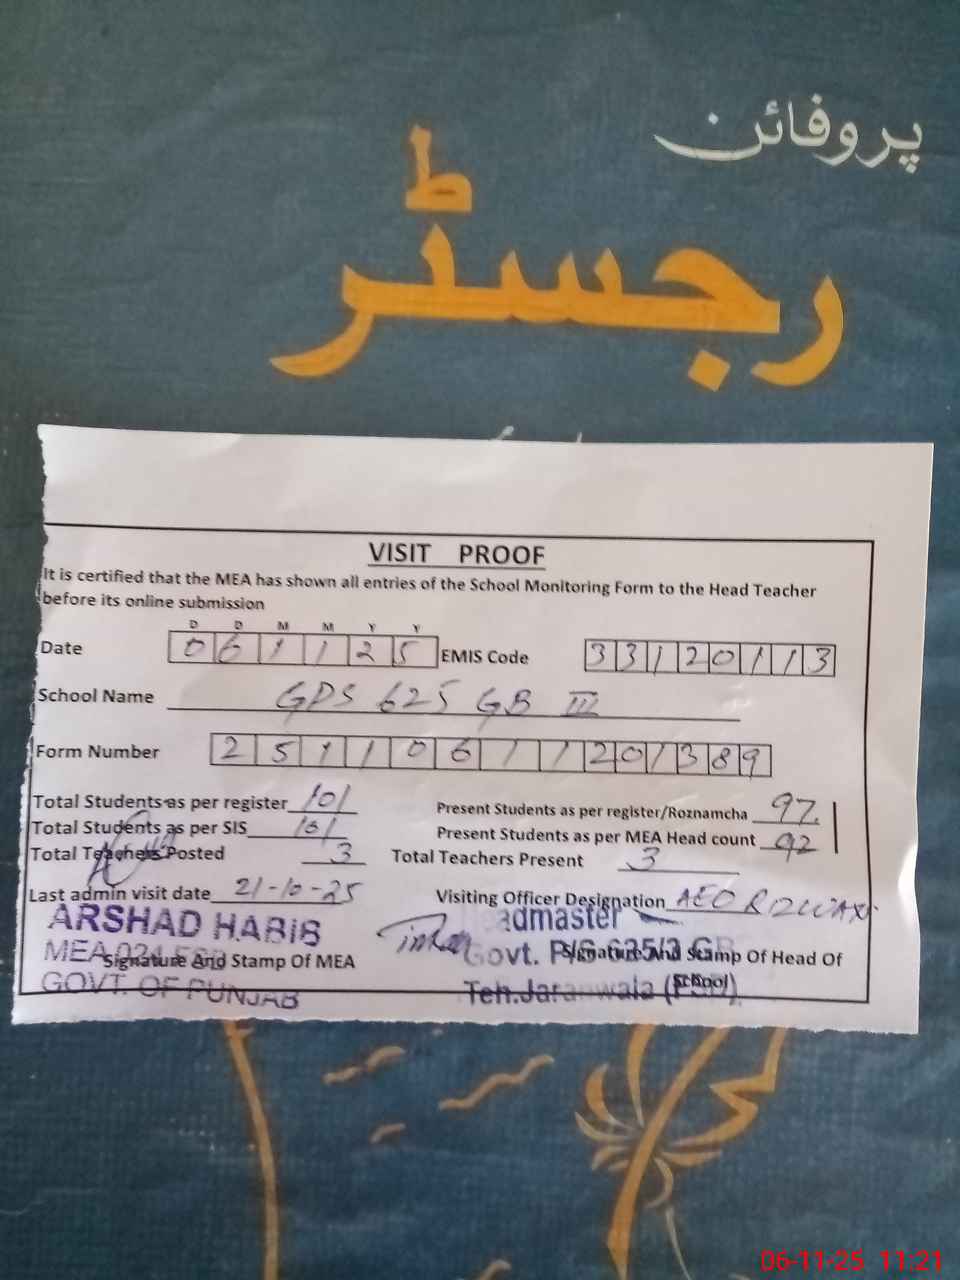 پروفائن
رجسٹر
VISIT PROOF
It is certified that the MEA has shown all entries of the School Monitoring Form to the Head Teacher
before its online submission
D D M M Y Y
Date 0 6 1 1 2 5 EMIS Code 3 3 1 2 0 1 1 3
School Name GPS 625 GB III
Form Number 2 5 1 1 0 6 1 1 2 0 1 3 8 9
Total Students as per register 101 Present Students as per register/Roznamcha 97
Total Students as per SIS 101 Present Students as per MEA Head count 92
Total Teachers Posted 3 Total Teachers Present 3
Last admin visit date 21-10-25 Visiting Officer Designation AEO RIZWAN
ARSHAD HABIB
MEA 024
Signature And Stamp Of MEA
GOVT. OF PUNJAB
Headmaster
Govt. P/S 625/3 GB
Signature And Stamp Of Head Of
School
Teh.Jaranwala (FSD)
06-11-25 11:21